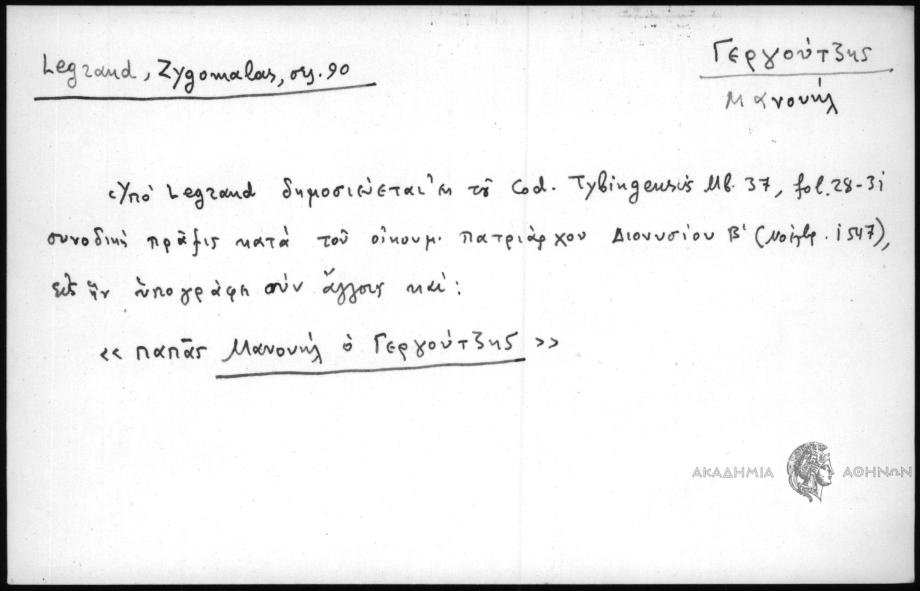 Legrand, Zygomalas, σελ. 90
Γεργούτζης
Μανουήλ
Ὑπό Legrand δημοσιεύεται ἐκ τοῦ Cod. Tybingensis Mb. 37, fol. 28-31
συνοδική πρᾶξις κατά τοῦ οἰκουμ. πατριάρχου Διονυσίου Β' (Νοέμβρ. 1547),
εἰς ἥν ὑπογράφει σύν ἄλλοις καί:
« παπᾶς Μανουήλ ὁ Γεργούτζης »
ΑΚΑΔΗΜΙΑ ΑΘΗΝΩΝ